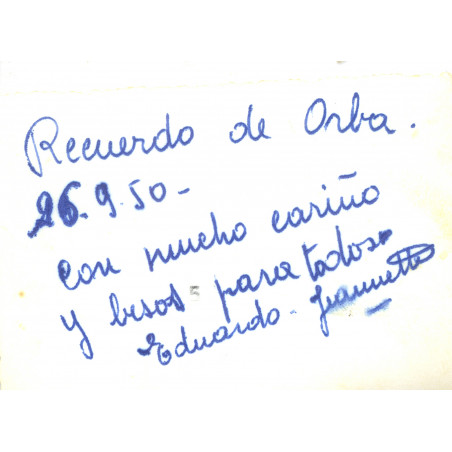 Recuerdo de Orba.
26.9.50-
Con mucho cariño
y besos para todos
Eduardo - Jeannette